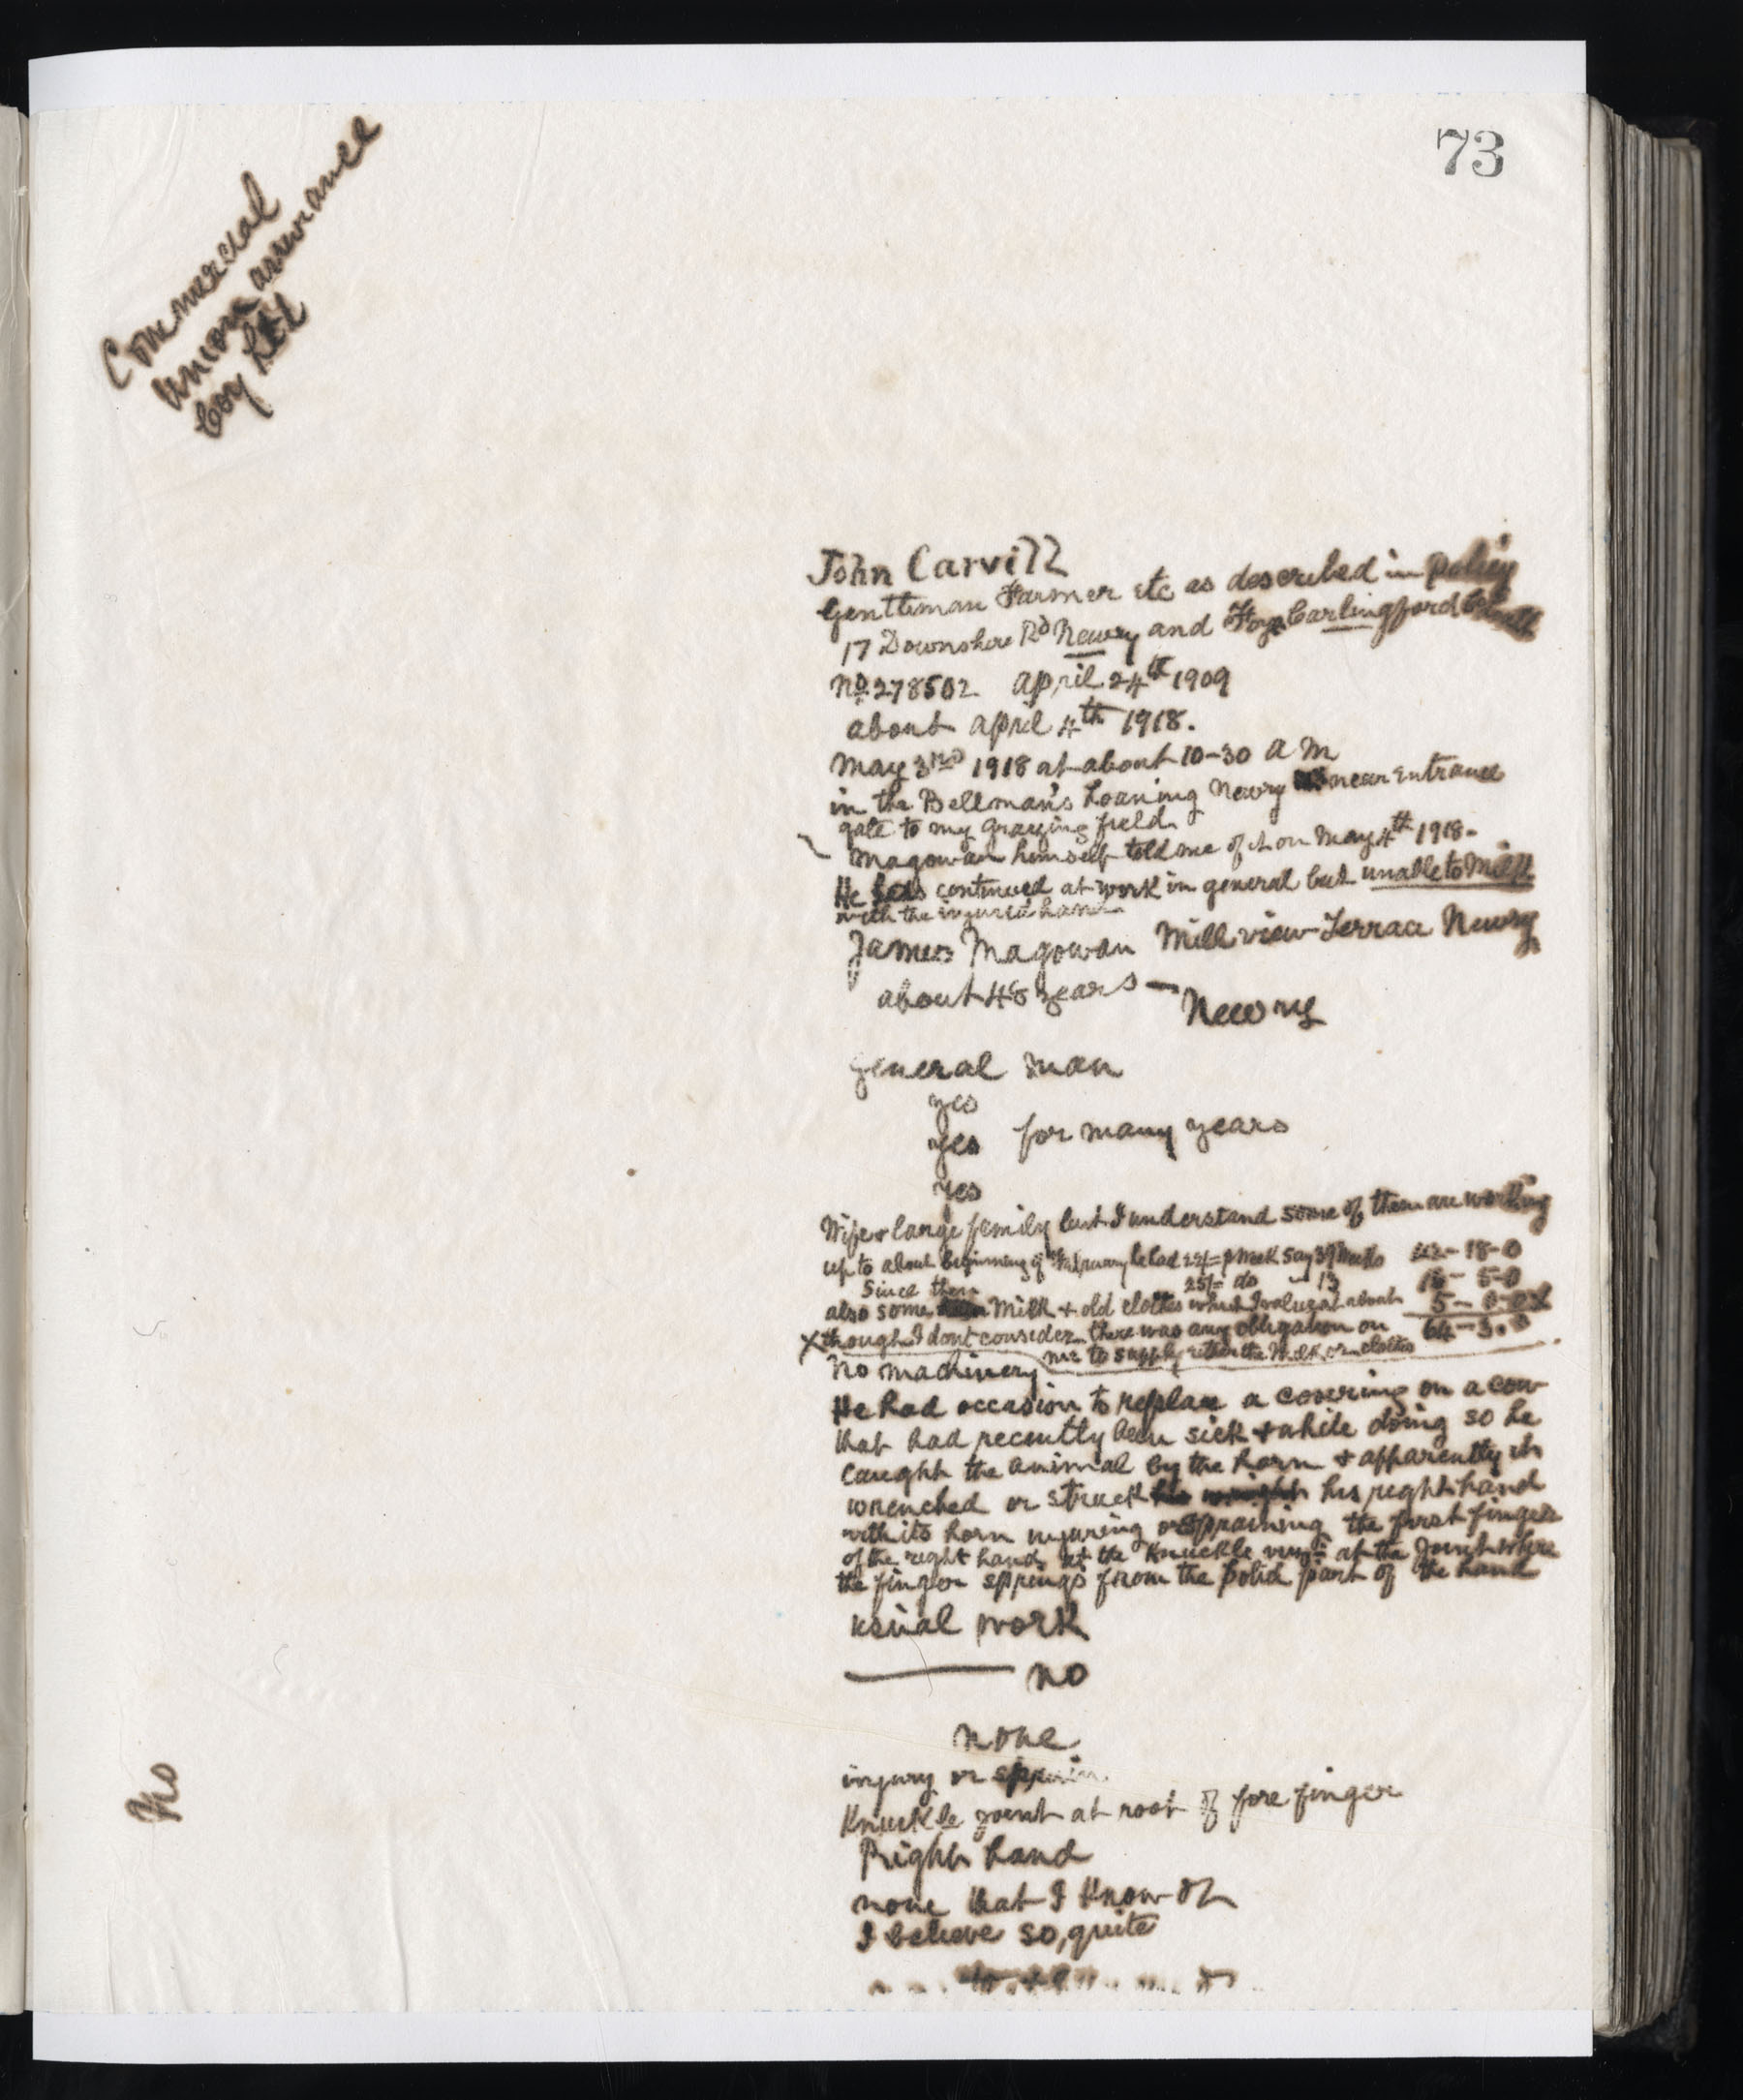 73
Commercial
Union assurance
Coy Ltd
John Carvill
Gentleman Farmer etc as described in policy
17 Downshire Rd Newry and Carlingford
No 278502 April 24th 1909
about april 4th 1918.
May 3rd 1918 at about 10-30 a m
in the Bellman's Loaning Newry near entrance
gate to my grazing field
Magowan himself told me of it on May 4th 1918.
He has continued at work in general but unable to milk
with the injured hand
James Magowan Millview-Terrace Newry
about 48 years — Newry
general man
yes
yes for many years
yes
Wife & large family but I understand some of them are working
up to about beginning of February he had 22/= p week say 39 weeks 42-18-0
Since then 25/= do 13 16-5-0
also some milk & old clothes which I value at about 5-0-0 X
X though I dont consider there was any obligation on 64-3-0
me to supply either the milk or clothes
No machinery
He had occasion to replace a covering on a cow
that had recently been sick & while doing so he
caught the animal by the horn & apparently it
wrenched or struck his right hand
with its horn injuring or spraining the first finger
of the right hand at the knuckle at the joint where
the finger springs from the solid part of the hand
usual work
— no
none
injury or sprain
Knuckle joint at root of fore finger
Right hand
none that I know of
I believe so, quite
No